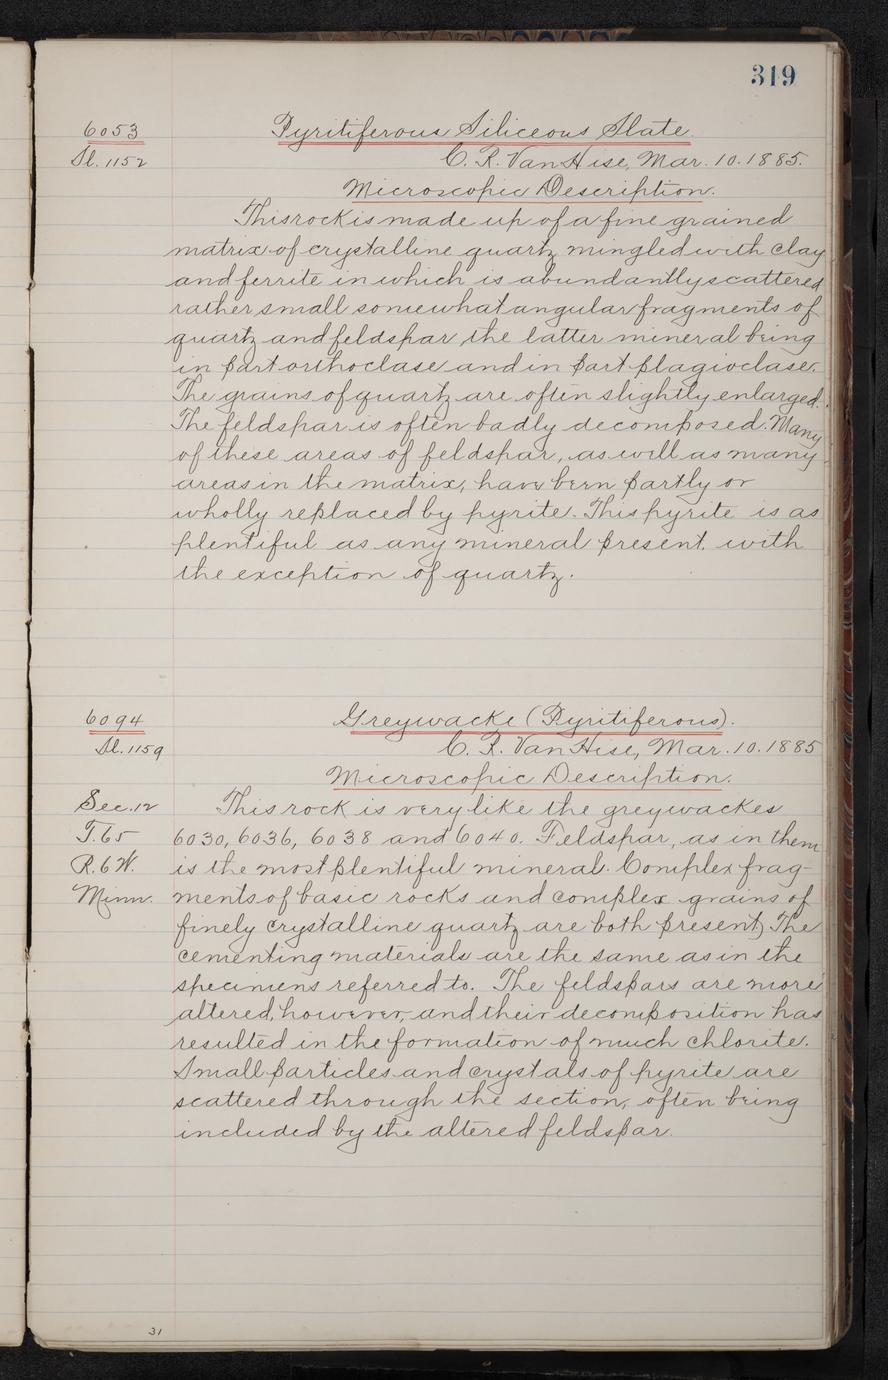 319
6053
Pyritiferous Siliceous Slate.
Sl. 1152
C. R. Van Hise, Mar. 10. 1885.
Microscopic Description.
This rock is made up of a fine grained
matrix of crystalline quartz mingled with clay
and ferrite in which is abundantly scattered
rather small somewhat angular fragments of
quartz and feldspar, the latter mineral being
in part orthoclase and in part plagioclase.
The grains of quartz are often slightly enlarged.
The feldspar is often badly decomposed. Many
of these areas of feldspar, as well as many
areas in the matrix, have been partly or
wholly replaced by pyrite. This pyrite is as
plentiful as any mineral present, with
the exception of quartz.
6094
Greywacke (Pyritiferous).
Sl. 1159
C. R. Van Hise, Mar. 10. 1885
Microscopic Description.
Sec. 12
This rock is very like the greywackes
T. 65
6030, 6036, 6038 and 6040. Feldspar, as in them
R. 6 W.
is the most plentiful mineral. Complex frag-
Minn.
ments of basic rocks and complex grains of
finely crystalline quartz are both present) The
cementing materials are the same as in the
specimens referred to. The feldspars are more
altered, however, and their decomposition has
resulted in the formation of much chlorite.
Small particles and crystals of pyrite are
scattered through the section, often being
included by the altered feldspar.
31